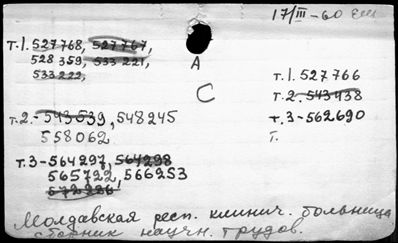 17/III-60
т.1.527768, 527767,
528359, 533221,
533222,
А
С
т.1.527766
т.2.543438
т.3-562690
т.
т.2.-543539, 548245
558062
т.3-564297, 564298
565722, 566253
572226
Молдавская респ. клинич. больница
сборник научн. трудов.